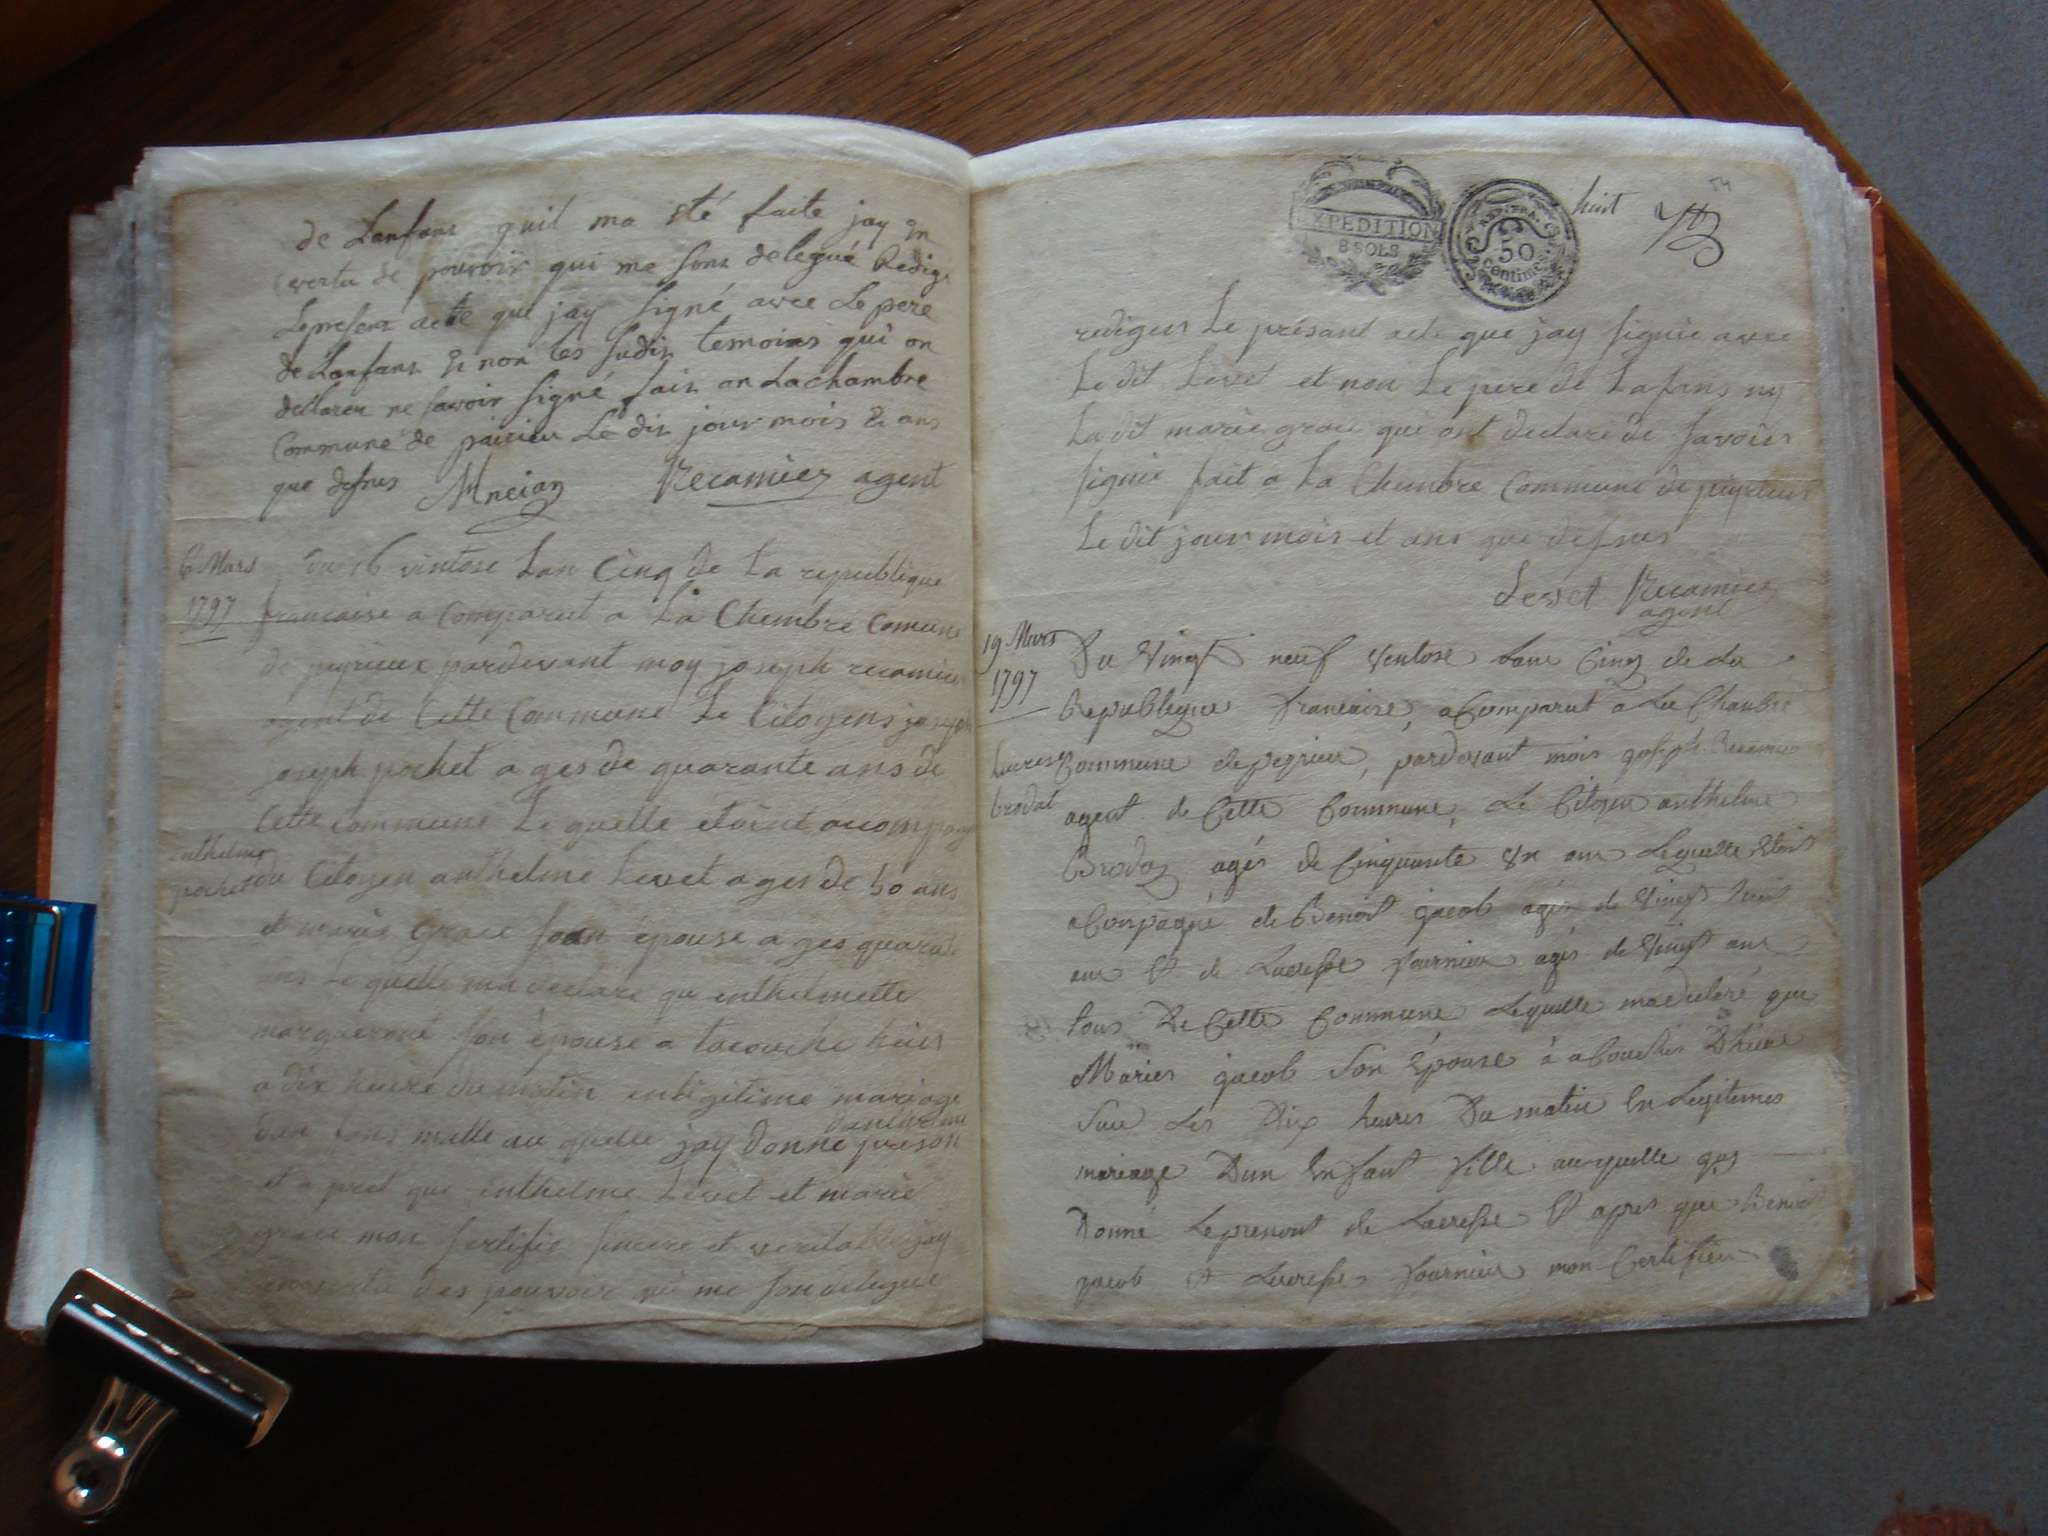 de Lanfans quil ma été faite jay En
vertu de pouvoir qui me sons delegué Redige
Lepresens acte que jay signé avec Le pere
de Lanfans & non les sudis temoins qui on
declarer ne savoir signé fais an La chambre
Commune de peirieu Le dis jour mois & ans
que desus Recamier agent
6 Mars
1797
du 16 vintose Lan Cinq de La republique
francaise a Comparut a La Chembre Comune
de peyrieux pardevant moy joseph recamier
agent de Cette Commune Le Citoyens joseph
joseph pochet ages de quarante ans de
Cette Commune Le quelle etoint acompagn
enthelme
pochet
du Citoyen anthelme Levet ages de 50 ans
et marie grace son epouse a ges quarate
ans Le quelle ma declare que enthelmette
margueront son epouse a lacouche hiers
a dix heure du matin enligitime mariage
dun fans malle au quelle jay donne preson
danthelme
et a pret que enthelme Levet et marie
grace mon sertifie sincere et veritable jay
en vertu des pouvoir qui me son delegue
EXPEDITION
8 SOLS
50
Centimes
huit
54
rediger Le présant acte que jay signie avec
Le dit Levet et non Le pere de Lafans ny
La dit marie grace qui ont declare de savoir
signie fait a La Chembre Commune de peyrieux
Le dit jour mois et ans que desus
Levet Recamier
agent
19 Mars
1797
Du Vingt neuf ventose Lans Cinq de La
Republique francaise, a Comparut a La Chanbre
Lucresse
brodat
Commune de peyrieu, pardevant mois joseph Recamier
agent de Cette Commune, Le Citoyen anthelme
Brodaz agés de Cinquante un ans Lequelle Etois
aConpagné de Benoit jacob agés de Vingt huit
ans Et de Lucresse fournier agés de Vingt ans
tous De Cette Commune Lequelle ma declaré que
Maries jacob Son Epouse á aCouches Dhiers
Sur Les Dix heures Du matin En Legitimes
mariage Dun Enfant fille auquelle jay
Donné Le prenont de Lucresse Et apres que Benoit
jacob Et Lucresse fournier mon Certifier